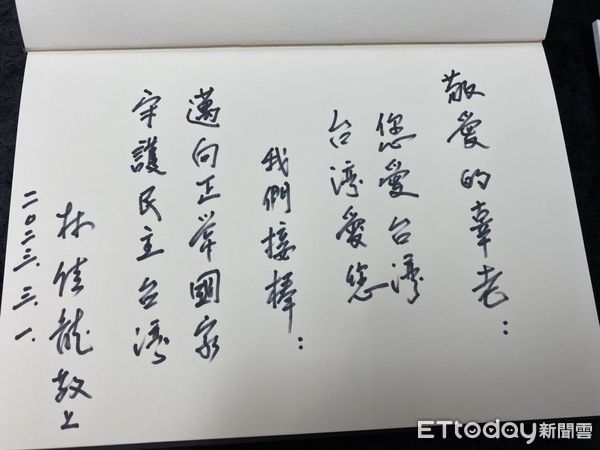 敬愛的辜老:
您愛台湾
台湾愛您
我們接棒:
邁向正常國家
守護民主台湾
林佳龍敬上
二〇二三.三.一.
ETtoday新聞雲